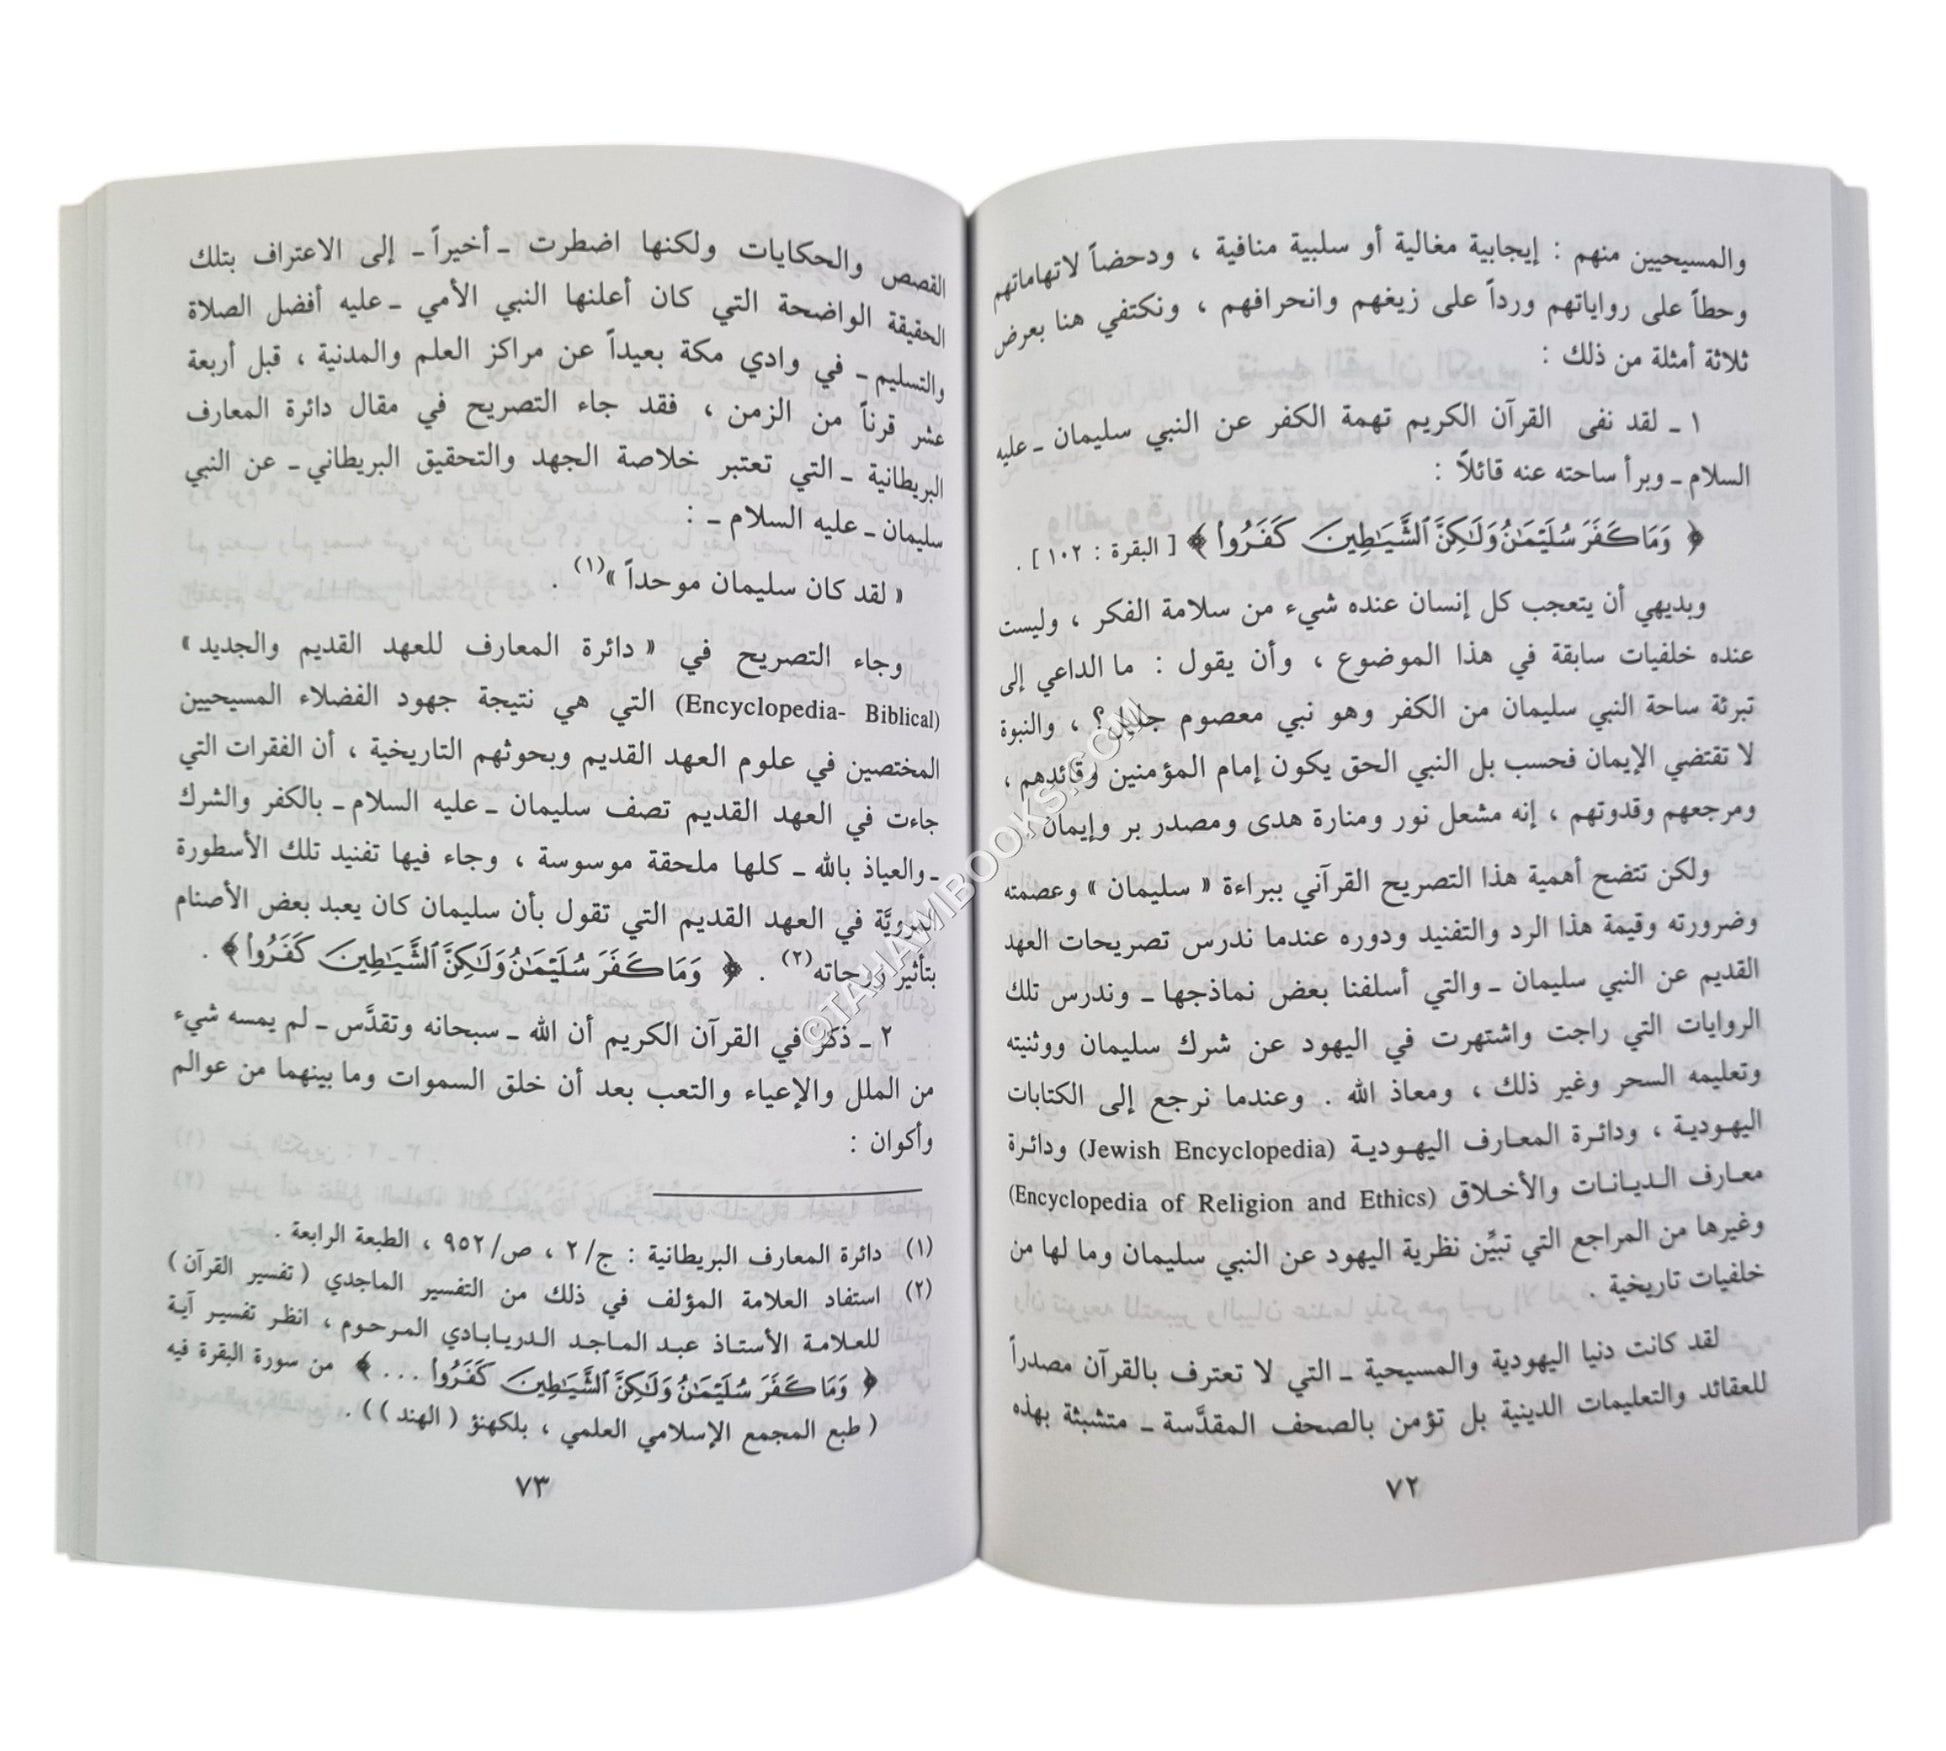 والمسيحيين منهم : إيجابية مغالية أو سلبية منافية ، ودحضاً لاتهاماتهم
وحطاً على رواياتهم ورداً على زيغهم وانحرافهم ، ونكتفي هنا بعرض
ثلاثة أمثلة من ذلك :
١ ـ لقد نفى القرآن الكريم تهمة الكفر عن النبي سليمان ـ عليه
السلام ـ وبرأ ساحته عنه قائلاً :
﴿ وَمَا كَفَرَ سُلَيْمَٰنُ وَلَٰكِنَّ ٱلشَّيَٰطِينَ كَفَرُوا۟ ﴾ [ البقرة : ١٠٢ ] .
وبديهي أن يتعجب كل إنسان عنده شيء من سلامة الفكر ، وليست
عنده خلفيات سابقة في هذا الموضوع ، وأن يقول : ما الداعي إلى
تبرئة ساحة النبي سليمان من الكفر وهو نبي معصوم جليل؟ ، والنبوة
لا تقتضي الإيمان فحسب بل النبي الحق يكون إمام المؤمنين وقائدهم ،
ومرجعهم وقدوتهم ، إنه مشعل نور ومنارة هدى ومصدر بر وإيمان .
ولكن تتضح أهمية هذا التصريح القرآني ببراءة « سليمان » وعصمته
وضرورته وقيمة هذا الرد والتفنيد ودوره عندما ندرس تصريحات العهد
القديم عن النبي سليمان ـ والتي أسلفنا بعض نماذجها ـ وندرس تلك
الروايات التي راجت واشتهرت في اليهود عن شرك سليمان ووثنيته
وتعليمه السحر وغير ذلك ، ومعاذ الله . وعندما نرجع إلى الكتابات
اليهودية ، ودائرة المعارف اليهودية (Jewish Encyclopedia) ودائرة
معارف الديانات والأخلاق (Encyclopedia of Religion and Ethics)
وغيرها من المراجع التي تبيِّن نظرية اليهود عن النبي سليمان وما لها من
خلفيات تاريخية .
لقد كانت دنيا اليهودية والمسيحية ـ التي لا تعترف بالقرآن مصدراً
للعقائد والتعليمات الدينية بل تؤمن بالصحف المقدَّسة ـ متشبثة بهذه
٧٢
القصص والحكايات ولكنها اضطرت ـ أخيراً ـ إلى الاعتراف بتلك
الحقيقة الواضحة التي كان أعلنها النبي الأمي ـ عليه أفضل الصلاة
والتسليم ـ في وادي مكة بعيداً عن مراكز العلم والمدنية ، قبل أربعة
عشر قرناً من الزمن ، فقد جاء التصريح في مقال دائرة المعارف
البريطانية ـ التي تعتبر خلاصة الجهد والتحقيق البريطاني ـ عن النبي
سليمان ـ عليه السلام ـ :
« لقد كان سليمان موحداً »(١) .
وجاء التصريح في « دائرة المعارف للعهد القديم والجديد »
(Encyclopedia- Biblical) التي هي نتيجة جهود الفضلاء المسيحيين
المختصين في علوم العهد القديم وبحوثهم التاريخية ، أن الفقرات التي
جاءت في العهد القديم تصف سليمان ـ عليه السلام ـ بالكفر والشرك
ـ والعياذ بالله ـ كلها ملحقة موسوسة ، وجاء فيها تفنيد تلك الأسطورة
المرويَّة في العهد القديم التي تقول بأن سليمان كان يعبد بعض الأصنام
بتأثير زوجاته(٢) . ﴿ وَمَا كَفَرَ سُلَيْمَٰنُ وَلَٰكِنَّ ٱلشَّيَٰطِينَ كَفَرُوا۟ ﴾ .
٢ ـ ذكر في القرآن الكريم أن الله ـ سبحانه وتقدَّس ـ لم يمسه شيء
من الملل والإعياء والتعب بعد أن خلق السموات وما بينهما من عوالم
وأكوان :
(١) دائرة المعارف البريطانية : ج/٢ ، ص/٩٥٢ ، الطبعة الرابعة .
(٢) استفاد العلامة المؤلف في ذلك من التفسير الماجدي ( تفسير القرآن )
للعلامة الأستاذ عبد الماجد الدريابادي المرحوم ، انظر تفسير آية
﴿ وَمَا كَفَرَ سُلَيْمَٰنُ وَلَٰكِنَّ ٱلشَّيَٰطِينَ كَفَرُوا۟ ... ﴾ من سورة البقرة فيه
( طبع المجمع الإسلامي العلمي ، بلكهنؤ ( الهند ) ) .
٧٣
©TAHAWIBOOKS.COM